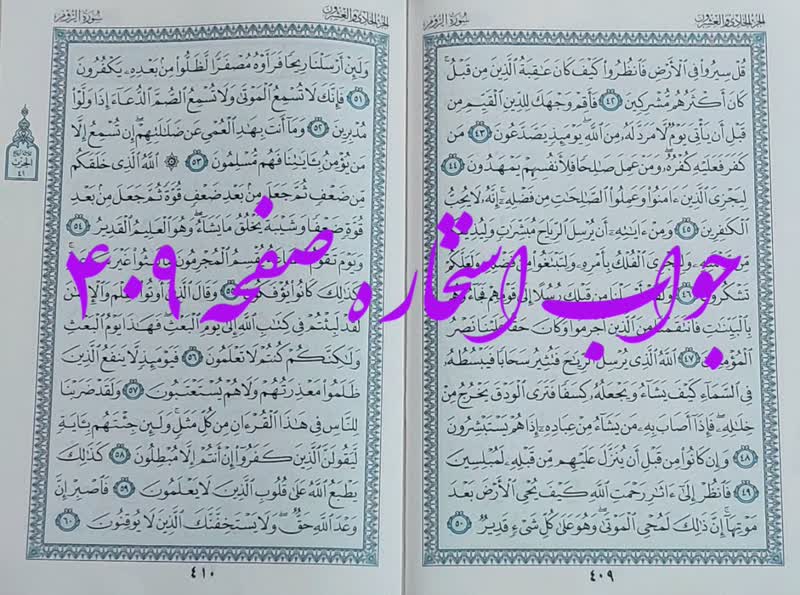 الجزء الحادي والعشرون سورة الروم
قُلْ سِيرُوا۟ فِى ٱلْأَرْضِ فَٱنظُرُوا۟ كَيْفَ كَانَ عَـٰقِبَةُ ٱلَّذِينَ مِن قَبْلُ ۚ
كَانَ أَكْثَرُهُم مُّشْرِكِينَ ٤٢ فَأَقِمْ وَجْهَكَ لِلدِّينِ ٱلْقَيِّمِ مِن
قَبْلِ أَن يَأْتِىَ يَوْمٌ لَّا مَرَدَّ لَهُۥ مِنَ ٱللَّهِ ۖ يَوْمَئِذٍ يَصَّدَّعُونَ ٤٣ مَن
كَفَرَ فَعَلَيْهِ كُفْرُهُۥ ۖ وَمَنْ عَمِلَ صَـٰلِحًا فَلِأَنفُسِهِمْ يَمْهَدُونَ ٤٤
لِيَجْزِىَ ٱلَّذِينَ ءَامَنُوا۟ وَعَمِلُوا۟ ٱلصَّـٰلِحَـٰتِ مِن فَضْلِهِۦٓ ۚ إِنَّهُۥ لَا يُحِبُّ
ٱلْكَـٰفِرِينَ ٤٥ وَمِنْ ءَايَـٰتِهِۦٓ أَن يُرْسِلَ ٱلرِّيَاحَ مُبَشِّرَٰتٍ وَلِيُذِيقَكُم
مِّن رَّحْمَتِهِۦ وَلِتَجْرِىَ ٱلْفُلْكُ بِأَمْرِهِۦ وَلِتَبْتَغُوا۟ مِن فَضْلِهِۦ وَلَعَلَّكُمْ
تَشْكُرُونَ ٤٦ وَلَقَدْ أَرْسَلْنَا مِن قَبْلِكَ رُسُلًا إِلَىٰ قَوْمِهِمْ فَجَآءُوهُم
بِٱلْبَيِّنَـٰتِ فَٱنتَقَمْنَا مِنَ ٱلَّذِينَ أَجْرَمُوا۟ ۖ وَكَانَ حَقًّا عَلَيْنَا نَصْرُ
ٱلْمُؤْمِنِينَ ٤٧ ٱللَّهُ ٱلَّذِى يُرْسِلُ ٱلرِّيَـٰحَ فَتُثِيرُ سَحَابًا فَيَبْسُطُهُۥ
فِى ٱلسَّمَآءِ كَيْفَ يَشَآءُ وَيَجْعَلُهُۥ كِسَفًا فَتَرَى ٱلْوَدْقَ يَخْرُجُ مِنْ
خِلَـٰلِهِۦ ۖ فَإِذَآ أَصَابَ بِهِۦ مَن يَشَآءُ مِنْ عِبَادِهِۦٓ إِذَا هُمْ يَسْتَبْشِرُونَ
٤٨ وَإِن كَانُوا۟ مِن قَبْلِ أَن يُنَزَّلَ عَلَيْهِم مِّن قَبْلِهِۦ لَمُبْلِسِينَ
٤٩ فَٱنظُرْ إِلَىٰٓ ءَاثَـٰرِ رَحْمَتِ ٱللَّهِ كَيْفَ يُحْىِ ٱلْأَرْضَ بَعْدَ
مَوْتِهَآ ۚ إِنَّ ذَٰلِكَ لَمُحْىِ ٱلْمَوْتَىٰ ۖ وَهُوَ عَلَىٰ كُلِّ شَىْءٍ قَدِيرٌ ٥٠
٤٠٩
الجزء الحادي والعشرون سورة الروم
وَلَئِنْ أَرْسَلْنَا رِيحًا فَرَأَوْهُ مُصْفَرًّا لَّظَلُّوا۟ مِنۢ بَعْدِهِۦ يَكْفُرُونَ
٥١ فَإِنَّكَ لَا تُسْمِعُ ٱلْمَوْتَىٰ وَلَا تُسْمِعُ ٱلصُّمَّ ٱلدُّعَآءَ إِذَا وَلَّوْا۟
مُدْبِرِينَ ٥٢ وَمَآ أَنتَ بِهَـٰدِ ٱلْعُمْىِ عَن ضَلَـٰلَتِهِمْ ۖ إِن تُسْمِعُ إِلَّا
مَن يُؤْمِنُ بِـَٔايَـٰتِنَا فَهُم مُّسْلِمُونَ ٥٣ ۞ ٱللَّهُ ٱلَّذِى خَلَقَكُم
مِّن ضَعْفٍ ثُمَّ جَعَلَ مِنۢ بَعْدِ ضَعْفٍ قُوَّةً ثُمَّ جَعَلَ مِنۢ بَعْدِ
قُوَّةٍ ضَعْفًا وَشَيْبَةً ۚ يَخْلُقُ مَا يَشَآءُ ۖ وَهُوَ ٱلْعَلِيمُ ٱلْقَدِيرُ ٥٤
وَيَوْمَ تَقُومُ ٱلسَّاعَةُ يُقْسِمُ ٱلْمُجْرِمُونَ مَا لَبِثُوا۟ غَيْرَ سَاعَةٍ ۚ
كَذَٰلِكَ كَانُوا۟ يُؤْفَكُونَ ٥٥ وَقَالَ ٱلَّذِينَ أُوتُوا۟ ٱلْعِلْمَ وَٱلْإِيمَـٰنَ
لَقَدْ لَبِثْتُمْ فِى كِتَـٰبِ ٱللَّهِ إِلَىٰ يَوْمِ ٱلْبَعْثِ ۖ فَهَـٰذَا يَوْمُ ٱلْبَعْثِ
وَلَـٰكِنَّكُمْ كُنتُمْ لَا تَعْلَمُونَ ٥٦ فَيَوْمَئِذٍ لَّا يَنفَعُ ٱلَّذِينَ
ظَلَمُوا۟ مَعْذِرَتُهُمْ وَلَا هُمْ يُسْتَعْتَبُونَ ٥٧ وَلَقَدْ ضَرَبْنَا
لِلنَّاسِ فِى هَـٰذَا ٱلْقُرْءَانِ مِن كُلِّ مَثَلٍ ۚ وَلَئِن جِئْتَهُم بِـَٔايَةٍ
لَّيَقُولَنَّ ٱلَّذِينَ كَفَرُوٓا۟ إِنْ أَنتُمْ إِلَّا مُبْطِلُونَ ٥٨ كَذَٰلِكَ
يَطْبَعُ ٱللَّهُ عَلَىٰ قُلُوبِ ٱلَّذِينَ لَا يَعْلَمُونَ ٥٩ فَٱصْبِرْ إِنَّ
وَعْدَ ٱللَّهِ حَقٌّ ۖ وَلَا يَسْتَخِفَّنَّكَ ٱلَّذِينَ لَا يُوقِنُونَ ٦٠
٤١٠
الحزب
٤١
جواب استخاره صفحه ۴۰۹